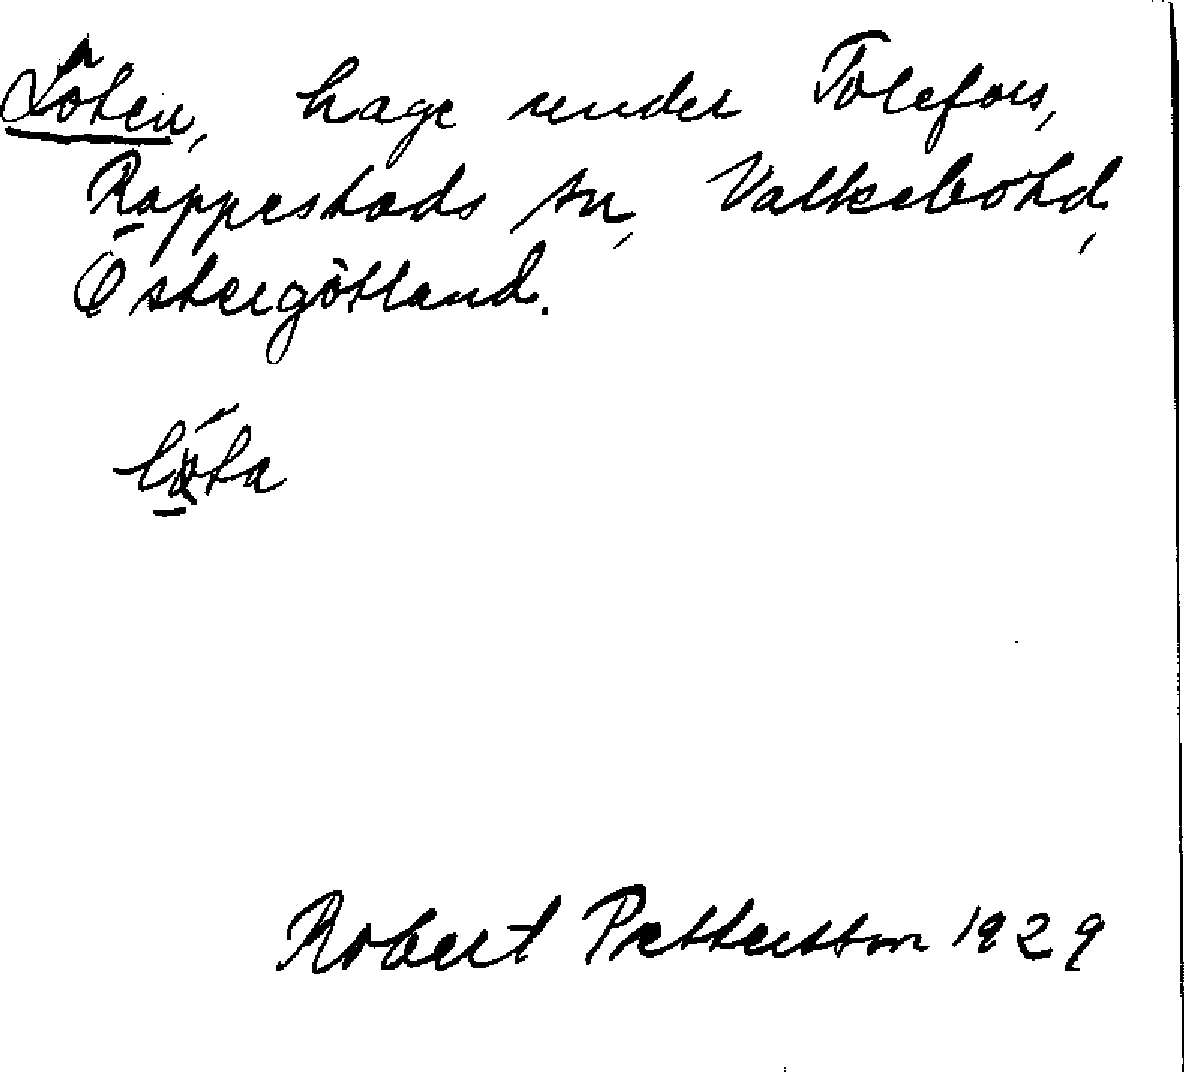 Löten, hage under Tolefors,
Rappestads sn, Valkebo hd,
Östergötland.
Robert Pettersson 1929